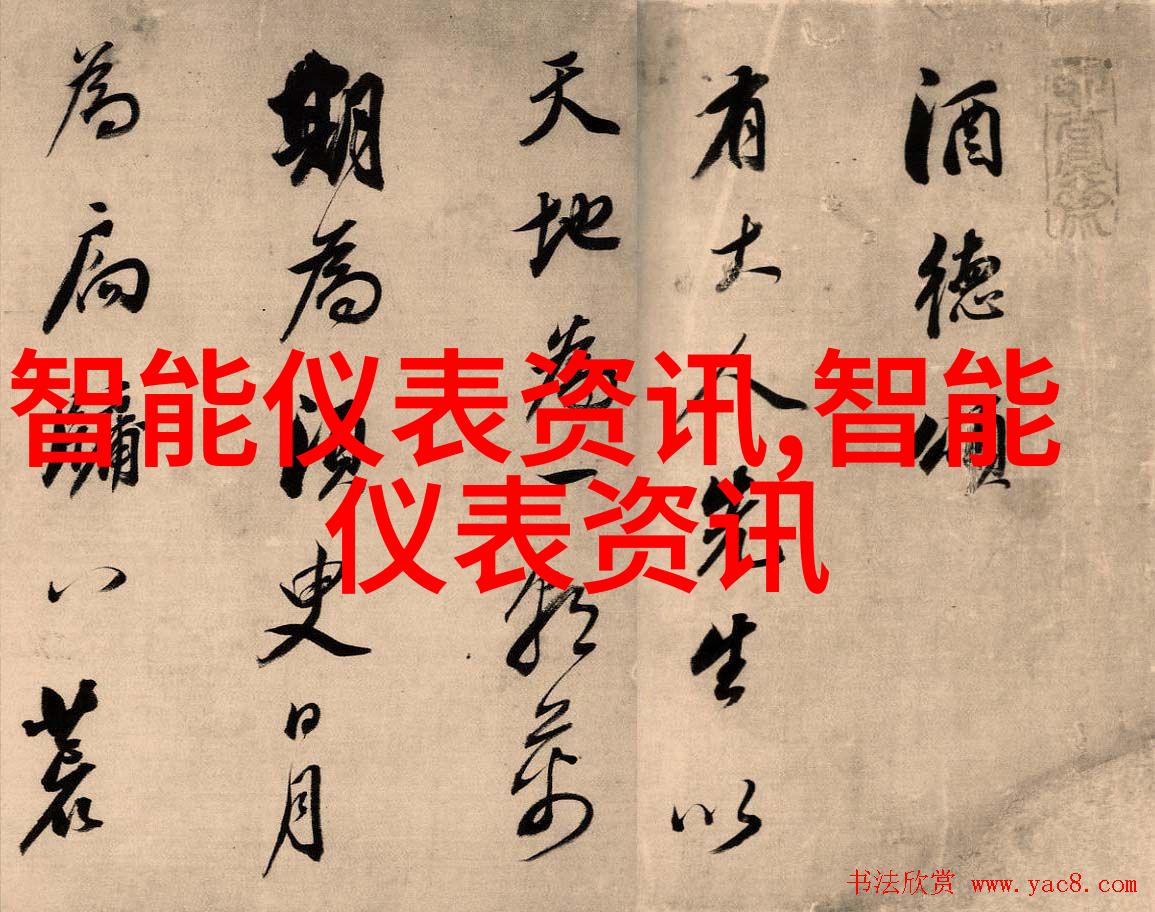 酒德頌
有大人先生以
天地為一朝萬
期為須臾日月
為扃牖八荒
智能仪表资讯,智能
仪表资讯
书法欣赏 www.yac8.com